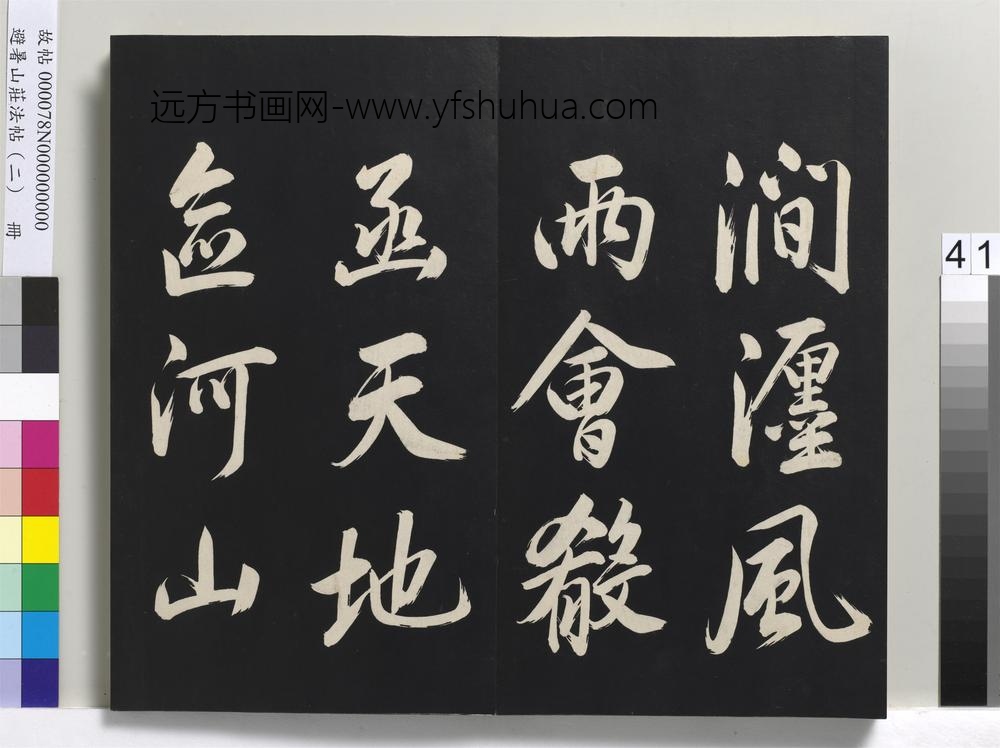 远方书画网-www.yfshuhua.com
澗瀍風
雨會殽
函天地
區河山
故帖 000078N000000000
避暑山莊法帖（二） 冊
41